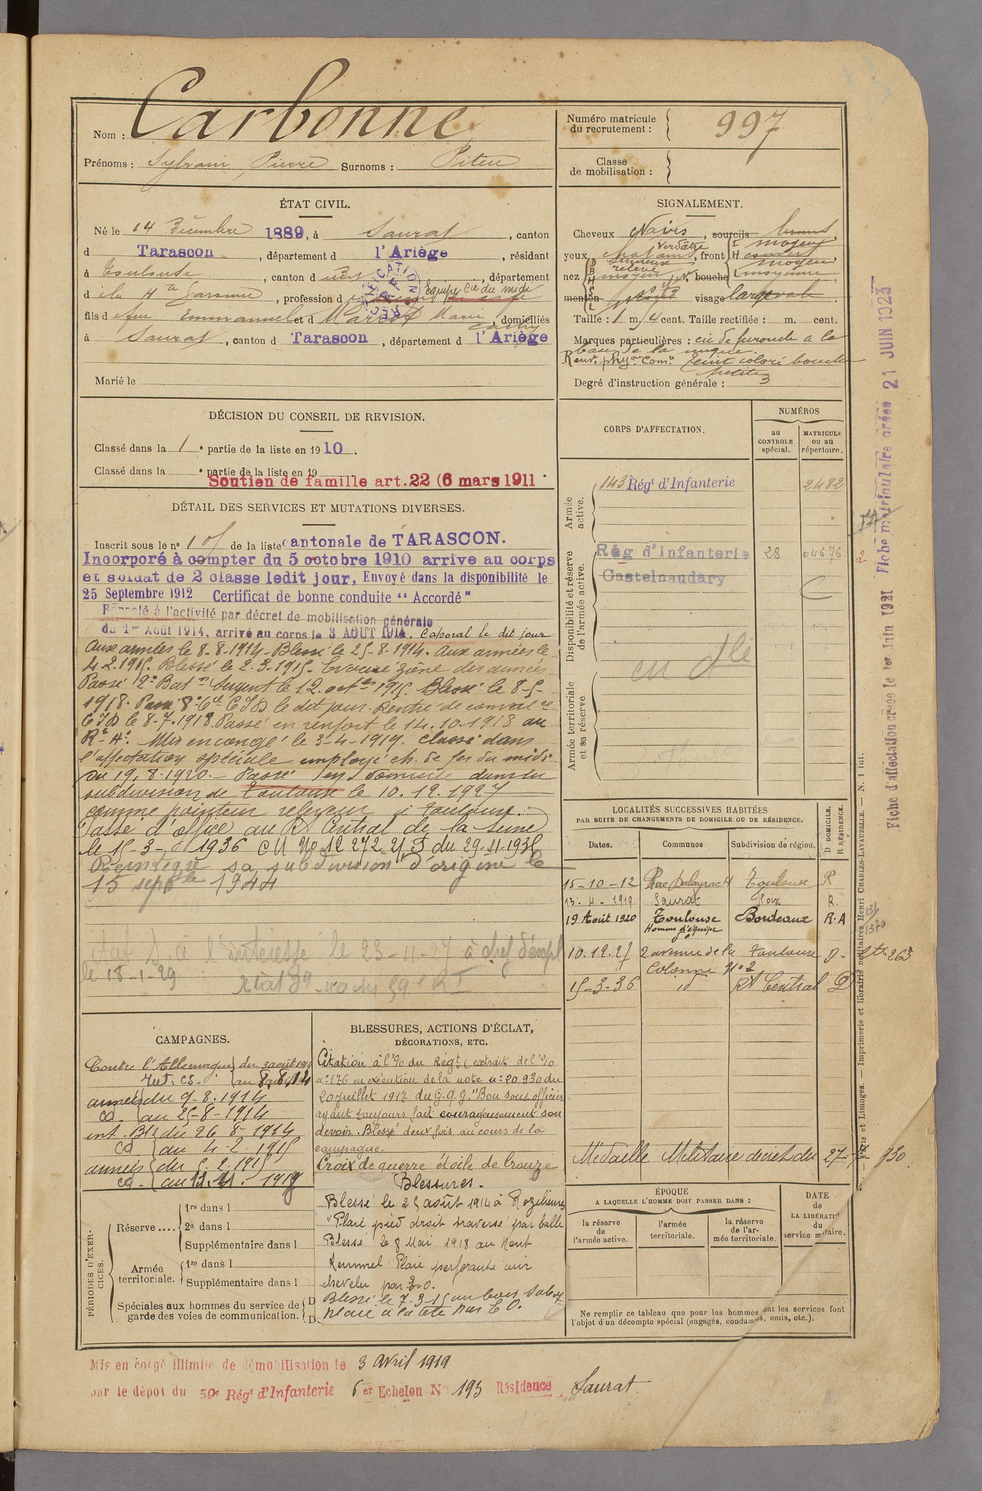 Nom : Carbonne
Prénoms : Sylvain, Pierre Surnoms : Piteu
Numéro matricule du recrutement : 997
Classe de mobilisation :
ÉTAT CIVIL.
Né le 14 Décembre 1889, à Saurat, canton
d Tarascon, département d l'Ariège, résidant
à Toulouse, canton d, département
d e la Hte Garonne, profession d Equipe Cie du midi
fils d e feu Emmanuel et d Marie, domiciliés
à Saurat, canton d Tarascon, département d l'Ariège
Marié le
SIGNALEMENT.
Cheveux Noirs, sourcils bruns
yeux verdâtre, front moyen
nez, bouche moyenne
menton rond visage large ovale
Taille : 1 m. cent. Taille rectifiée : m. cent.
Marques particulières : cic de furoncle à la
base de la nuque.
teint coloré bouche
petite
Degré d'instruction générale : 3
DÉCISION DU CONSEIL DE REVISION.
Classé dans la 1e partie de la liste en 1910.
Classé dans la e partie de la liste en 19
Soutien de famille art. 22 (6 mars 1911
DÉTAIL DES SERVICES ET MUTATIONS DIVERSES.
Inscrit sous le n° de la liste cantonale de TARASCON.
Incorporé à compter du 5 octobre 1910 arrive au corps
et soldat de 2 classe ledit jour, Envoyé dans la disponibilité le
25 Septembre 1912 Certificat de bonne conduite "Accordé"
Rappelé à l'activité par décret de mobilisation générale
du 1er Août 1914, arrivé au corps le 3 AOUT 1914. Caporal le dit jour
Aux armées le 8-8-1914. Blessé le 25-8-1914. Aux armées le
4-2-1915. Blessé le 2-3-1915. Evacué zône des armées
Passé 2e Baton Sergent le 12 octbre 1915. Blessé le 8-5-
1918. Passé 8e Cie CID le dit jour. Rentré de convalce
CID le 8-7-1918. Passé en renfort le 14-10-1918 au
Mis en congé le 3-4-1919. Classé dans
l'affectation spéciale employé ch. de fer du midi
du 19-8-1920. Passé dans la
subdivision de Toulouse le 10.12.1927
comme pointeur releveur à Toulouse.
Passé d'office au Rt Central de la Seine
le 15-3-1936 du 29-11-1935
Réintègre sa subdivision d'origine le
15 septbre 1944
à l'intéressé le 23-11-27 à chef d'empl
le 18-1-29
CORPS D'AFFECTATION.
NUMÉROS
au CONTROLE spécial.
MATRICULE ou au répertoire.
Armée active.
143 Régt d'Infanterie 2482
Disponibilité et réserve de l'armée active.
Rég d'Infanterie 28 04676
Castelnaudary
Armée territoriale et sa réserve
LOCALITÉS SUCCESSIVES HABITÉES
PAR SUITE DE CHANGEMENTS DE DOMICILE OU DE RÉSIDENCE.
Dates. Communes Subdivision de région. D DOMICILE. R RÉSIDENCE.
15-10-12 Rue Dalayrac Toulouse R
13-4-1919 Saurat Foix R.
19 Août 1920 Toulouse Bordeaux R.A
Homme d'équipe
10.12.27 2 avenue de la Toulouse D
Colonne n° 2
15-3-36 id Rt Central D
CAMPAGNES.
Contre l'Allemagne du 3 août 1914
Int. CS. au 8.8.14
armées du 9-8-1914
CD. au 25-8-1914
int. Bls du 26-8-1914
CD au 4-2-1915
armées du 5.2.1915
CD. au 1918
BLESSURES, ACTIONS D'ÉCLAT,
DÉCORATIONS, ETC.
Citation à l'%o du Régt (extrait de l'%o
n° 176 en exécution de la note n° 20930 du
20 juillet 1917 du G.Q.G. "Bon sous officier
ayant toujours fait courageusement son
devoir. Blessé deux fois au cours de la
campagne.
Croix de guerre étoile de bronze
Blessures.
Blessé le 25 août 1914 à Rozelieures
"Plaie pied droit traversé par balle
Blessé le 8 Mai 1918 au Mont
Kemmel Plaie perforante cuir
chevelu par E.O.
Blessé le 7.3.15 au bois Sabot
plaie à la tête par E.O.
Médaille Militaire décret du 27- 930
PÉRIODES D'EXERCICES.
Réserve.... 1re dans l
2e dans l
Supplémentaire dans l
Armée territoriale. 1re dans l
Supplémentaire dans l
Spéciales aux hommes du service de garde des voies de communication. D
D
ÉPOQUE
A LAQUELLE L'HOMME DOIT PASSER DANS :
la réserve de l'armée active.
l'armée territoriale.
la réserve de l'armée territoriale.
DATE de LA LIBÉRATION du service militaire.
Ne remplir ce tableau que pour les hommes dont les services font
l'objet d'un décompte spécial (engagés, condamnés, omis, etc.).
Mis en congé illimité de démobilisation le 3 Avril 1919
par le dépot du 59e Régt d'Infanterie 6er Echelon N° 193 Résidence Saurat.
Fiche d'affectation créée le 1er Juin 1921 Fiche matriculaire créée 21 JUIN 1923
Paris et Limoges. — Imprimerie et librairie militaires Henri CHARLES-LAVAUZELLE. — N. 1 int.